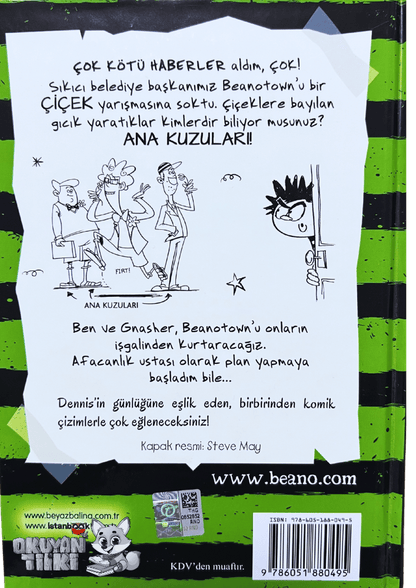 ÇOK KÖTÜ HABERLER aldım, ÇOK!
Sıkıcı belediye başkanımız Beanotown'u bir
ÇİÇEK yarışmasına soktu. Çiçeklere bayılan
gıcık yaratıklar kimlerdir biliyor musunuz?
ANA KUZULARI!
FIRT!
ANA KUZULARI
Ben ve Gnasher, Beanotown'u onların
işgalinden kurtaracağız.
Afacanlık ustası olarak plan yapmaya
başladım bile...
Dennis'in günlüğüne eşlik eden, birbirinden komik
çizimlerle çok eğleneceksiniz!
Kapak resmi: Steve May
www.beano.com
www.beyazbalina.com.tr
www.istanbook
OKUYAN
TİLKİ
KDV'den muaftır.
ISBN: 978-605-188-049-5
9 786051 880495